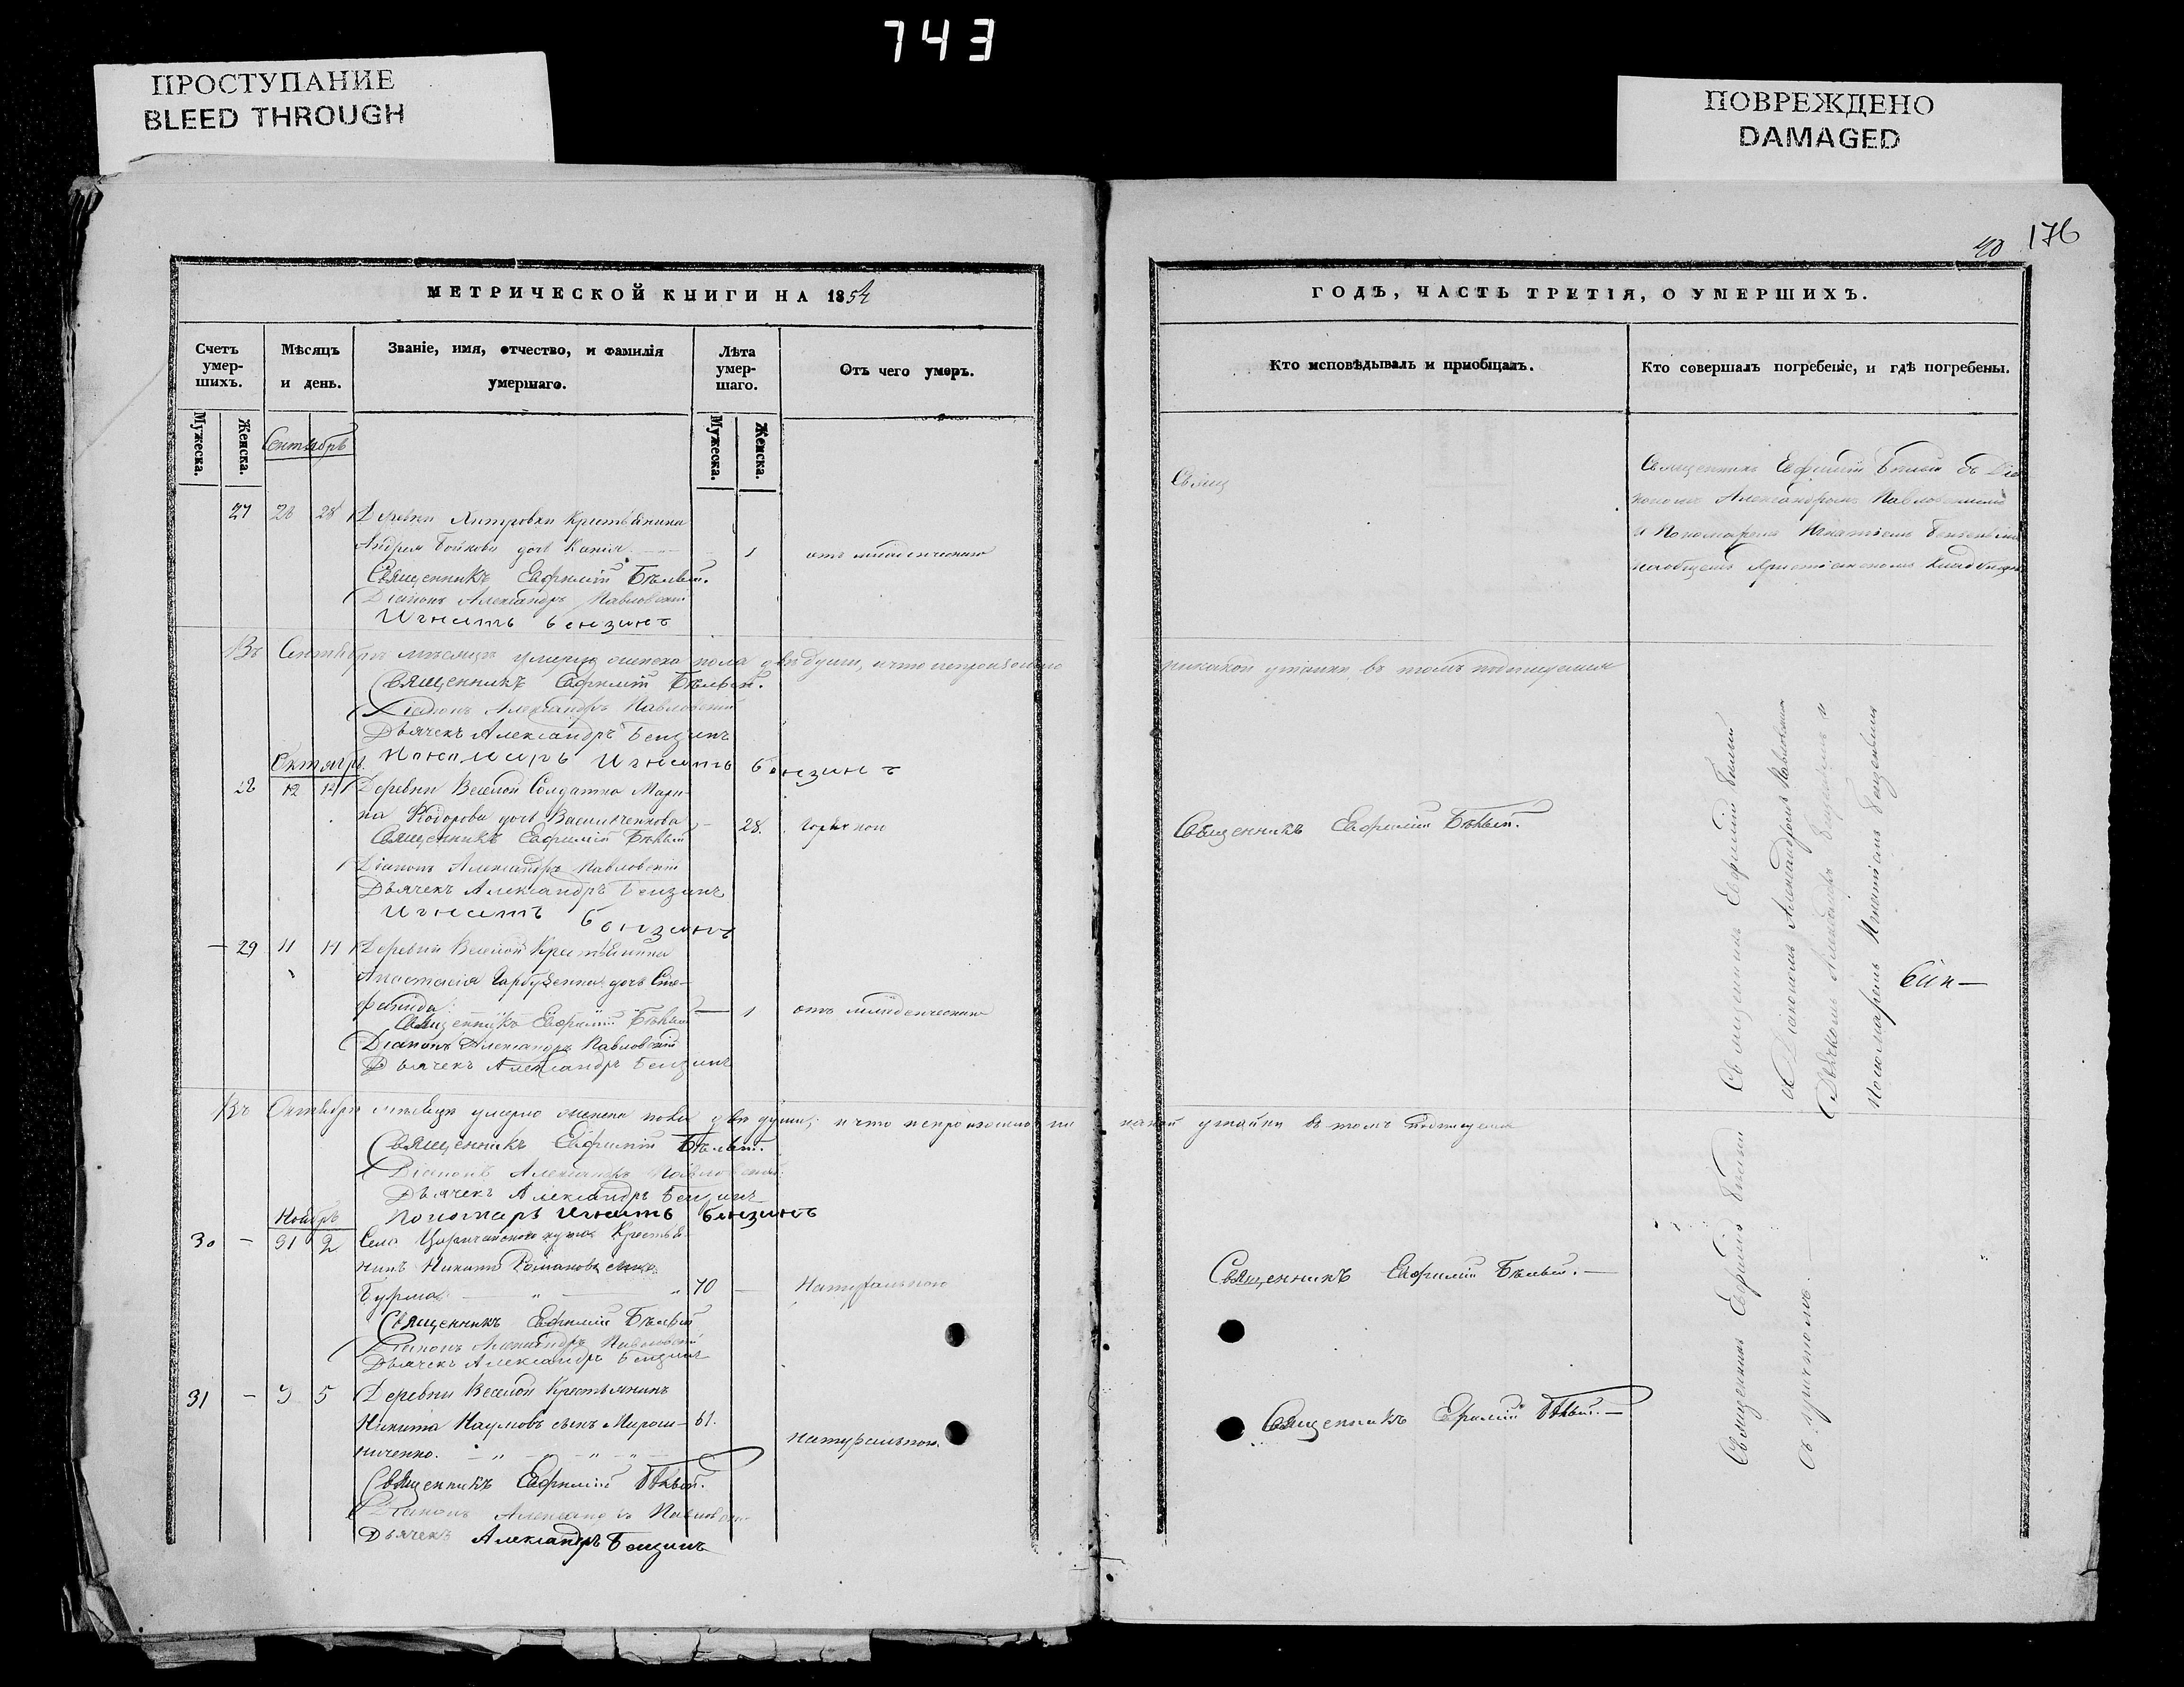 743
ПРОСТУПАНИЕ
BLEED THROUGH
ПОВРЕЖДЕНО
DAMAGED
176
МЕТРИЧЕСКОЙ КНИГИ НА 1854
Счетъ умерших.
Мѣсяцъ и день.
Званіе, имя, отчество, и фамилія умершаго.
Лѣта умершаго.
Отъ чего умеръ.
Мужеска.
Женска.
Мужеска.
Женска.
Сентябрь
27 26 28 Деревни Хитровки Крестьянина
Андрея Бойкова дочь 1 отъ младенческой
Священникъ Евфимій Бѣлый.
Діаконъ Александръ Павловскій
Игнатъ Бензинъ
Въ Сентябрѣ мѣсяцѣ умерло женска пола двѣ души, и что непроизошло
Священникъ Евфимій Бѣлый.
Діаконъ Александръ Павловскій
Дьячекъ Александръ Бензинъ
Пономарь Игнатъ Бензинъ
Октябрь
28 12 14 Деревни Веселой Солдатка Мари-
на Федорова дочь Василиченкова 28. Горячкою
Священникъ Евфимій Бѣлый
Діаконъ Александръ Павловскій
Дьячекъ Александръ Бензинъ
Игнатъ Бензинъ
29 11 14 Деревни Веселой Крестьянина
Гарбузенка дочь Сте-
фанида 1 отъ младенческой
Священникъ Евфимій Бѣлый
Діаконъ Александръ Павловскій
Дьячекъ Александръ Бензинъ
Въ Октябрѣ мѣсяцѣ умерло женска пола двѣ души; и что непроизошло ни
Священникъ Евфимій Бѣлый.
Діаконъ Александръ Павловскій
Дьячекъ Александръ Бензинъ
Пономарь Игнатъ Бензинъ
Ноябрь
30 – 31 2 Села Крестья-
нинъ Никита Романовъ сынъ
Бурма 70 – Натуральною
Священникъ Евфимій Бѣлый
Діаконъ Александръ Павловскій
Дьячекъ Александръ Бензинъ
31 – 3 5 Деревни Веселой Крестьянинъ
Никита Наумовъ сынъ Мирош- 61.
ниченко. натуральною.
Священникъ Евфимій Бѣлый.
Діаконъ Александръ Павловскій
Дьячекъ Александръ Бензинъ
ГОДЪ, ЧАСТЬ ТРЕТІЯ, О УМЕРШИХЪ.
Кто исповѣдывалъ и пріобщалъ.
Кто совершалъ погребеніе, и гдѣ погребены.
Свящ
Священникъ Евфимій Бѣлый съ Діа
кономъ Александромъ Павловскимъ
и Пономаремъ Игнатіемъ Бензинымъ
на общемъ Христіанскомъ кладбищѣ
никакой утайки въ томъ подписуемся
Священникъ Евфимій Бѣлый.
Священникъ Евфимій Бѣлый
съ Діакономъ Александромъ Павловскимъ
Дьячкомъ Александромъ Бензинымъ и
Пономаремъ Игнатіемъ Бензинымъ
какой утайки въ томъ подписуемся
Священникъ Евфимій Бѣлый. –
Священникъ Евфимій Бѣлый. –
Священникъ Евфимій Бѣлый
съ причтомъ. –